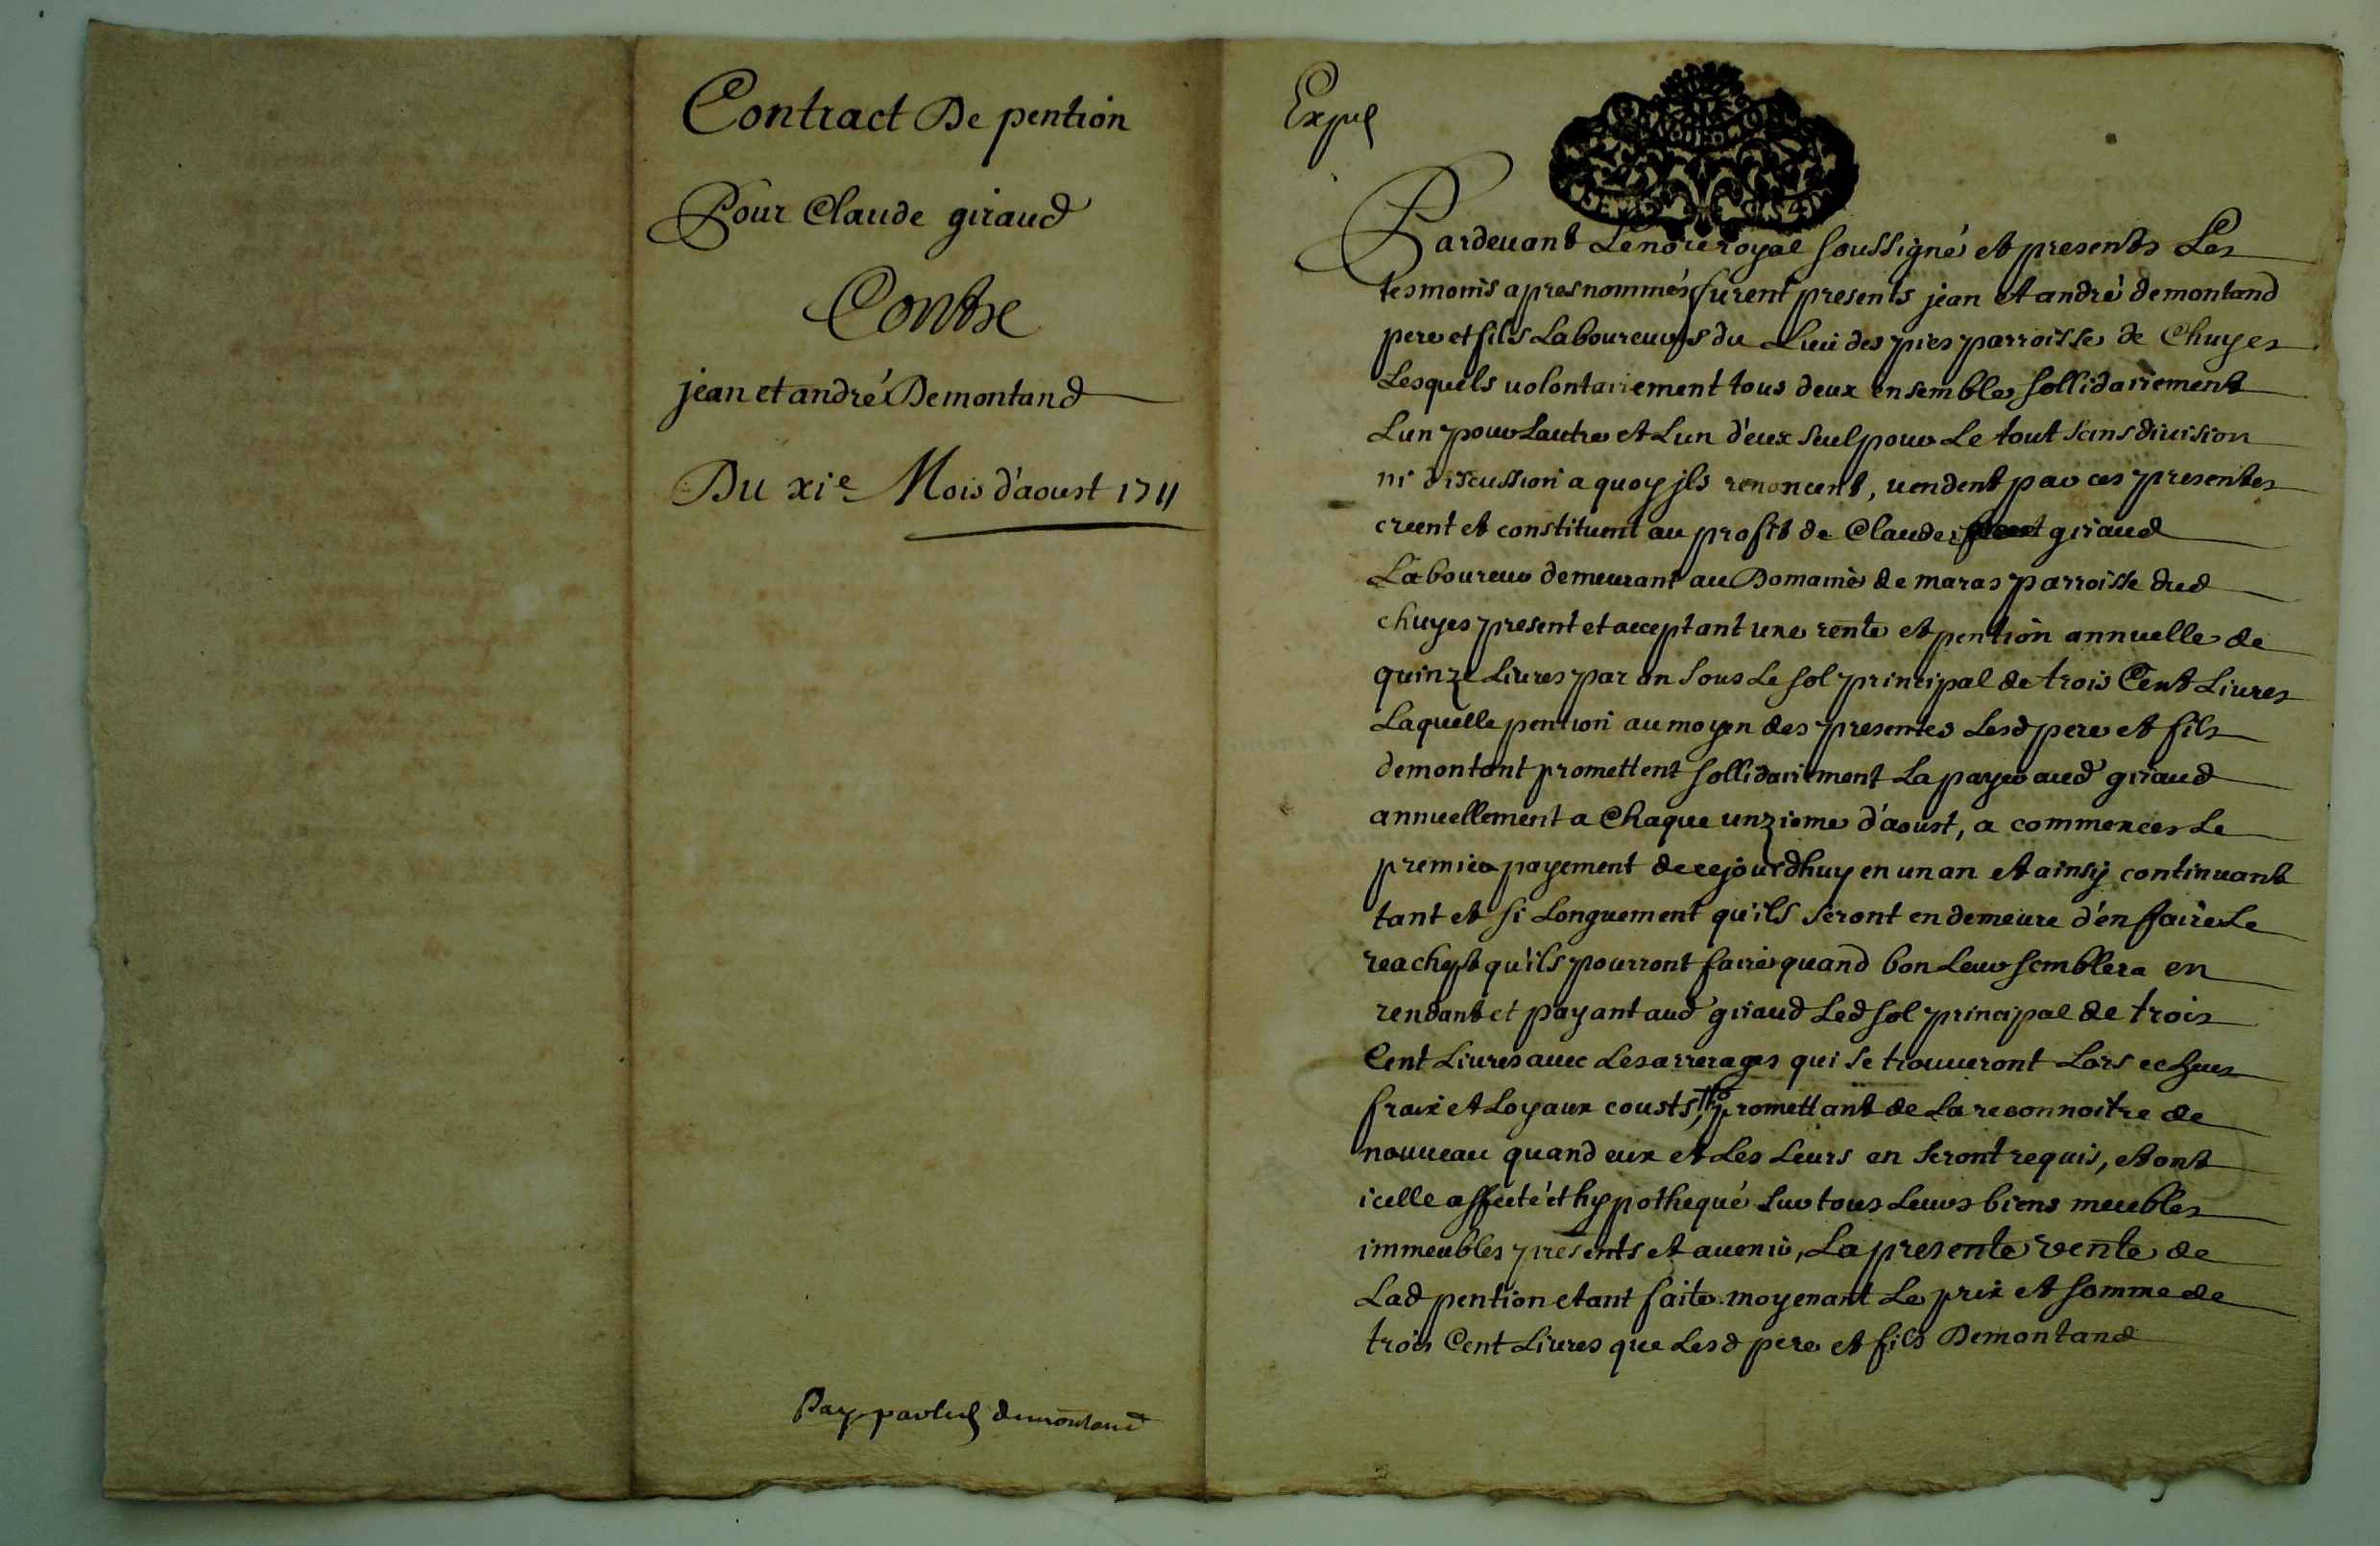 Contract De pention
Pour Claude giraud
Contre
jean et andré Demontand
Du xie Mois d'aoust 1711
Pay par led demontand
Expel
Pardevant Le nore royal soussigné et presents Les
tesmoins apres nommés furent presents jean et andré demontand
pere et fils Laboureurs du Lieu des pies parroisse de Chuyes
Lesquels volontairement tous deux ensembles sollidairement
Lun pour Lautre et Lun d'eux seul pour Le tout sans division
ni discussion a quoy jls renoncent, vendent par ces presentes
creent et constituent au profit de Claude giraud
Laboureur demeurant au Domaine de maras parroisse dud
chuyes present et acceptant une rente et pention annuelle de
quinze Livres par an sous Le sol principal de trois Cent Livres
Laquelle pention au moyen des presentes Lesd pere et fils
demontant promettent sollidairement La payer aud giraud
annuellement a Chaque unzieme d'aoust, a commencer Le
premier payement de cejourdhuy en un an et ainsy continuant
tant et si Longuement qu'ils seront en demeure d'en faire Le
reachept qu'ils pourront faire quand bon Leur semblera en
rendant et payant aud giraud Led sol principal de trois
Cent Livres avec Les arrerages qui se trouveront Lors echeus
fraix et Loyaux cousts, promettant de La reconnoitre de
nouveau quand eux et Les Leurs en seront requis, et ont
icelle affecté et hypothequé sur tous Leurs biens meubles
immeubles presents et avenir, La presente vente de
Lad pention etant faite moyenant Le prix et somme de
trois Cent Livres que Lesd pere et fils Demontand